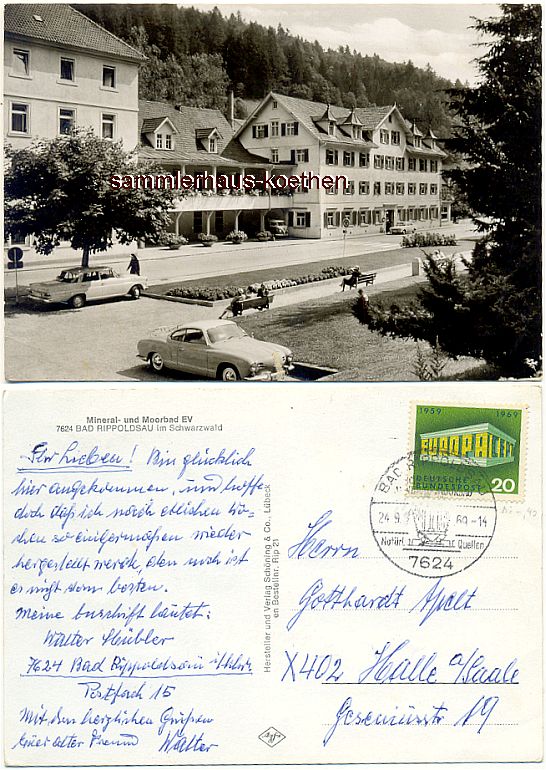 sammlerhaus-koethen
Mineral- und Moorbad EV
7624 BAD RIPPOLDSAU im Schwarzwald
Ihr Lieben! Bin glücklich
hier angekommen, und hoffe
doch daß ich nach etlichen Wo-
chen so einigermaßen wieder
hergestellt werde, denn noch ist
es nicht zum besten.
Meine Anschrift lautet:
Walter Hübler
7624 Bad Rippoldsau
Postfach 15
Mit den herzlichen Grüßen
Euer alter Freund Walter
Hersteller und Verlag Schöning & Co., Lübeck
en Besteller. Rip 21
Agfa
1959 1969
EUROPA CEPT
DEUTSCHE
BUNDESPOST 20
BAD RIPPOLDSAU
24.9. 69-14
Natürl. Quellen
7624
Herrn
Gotthardt Apelt
X402 Halle a/Saale
Geseniusstr 19